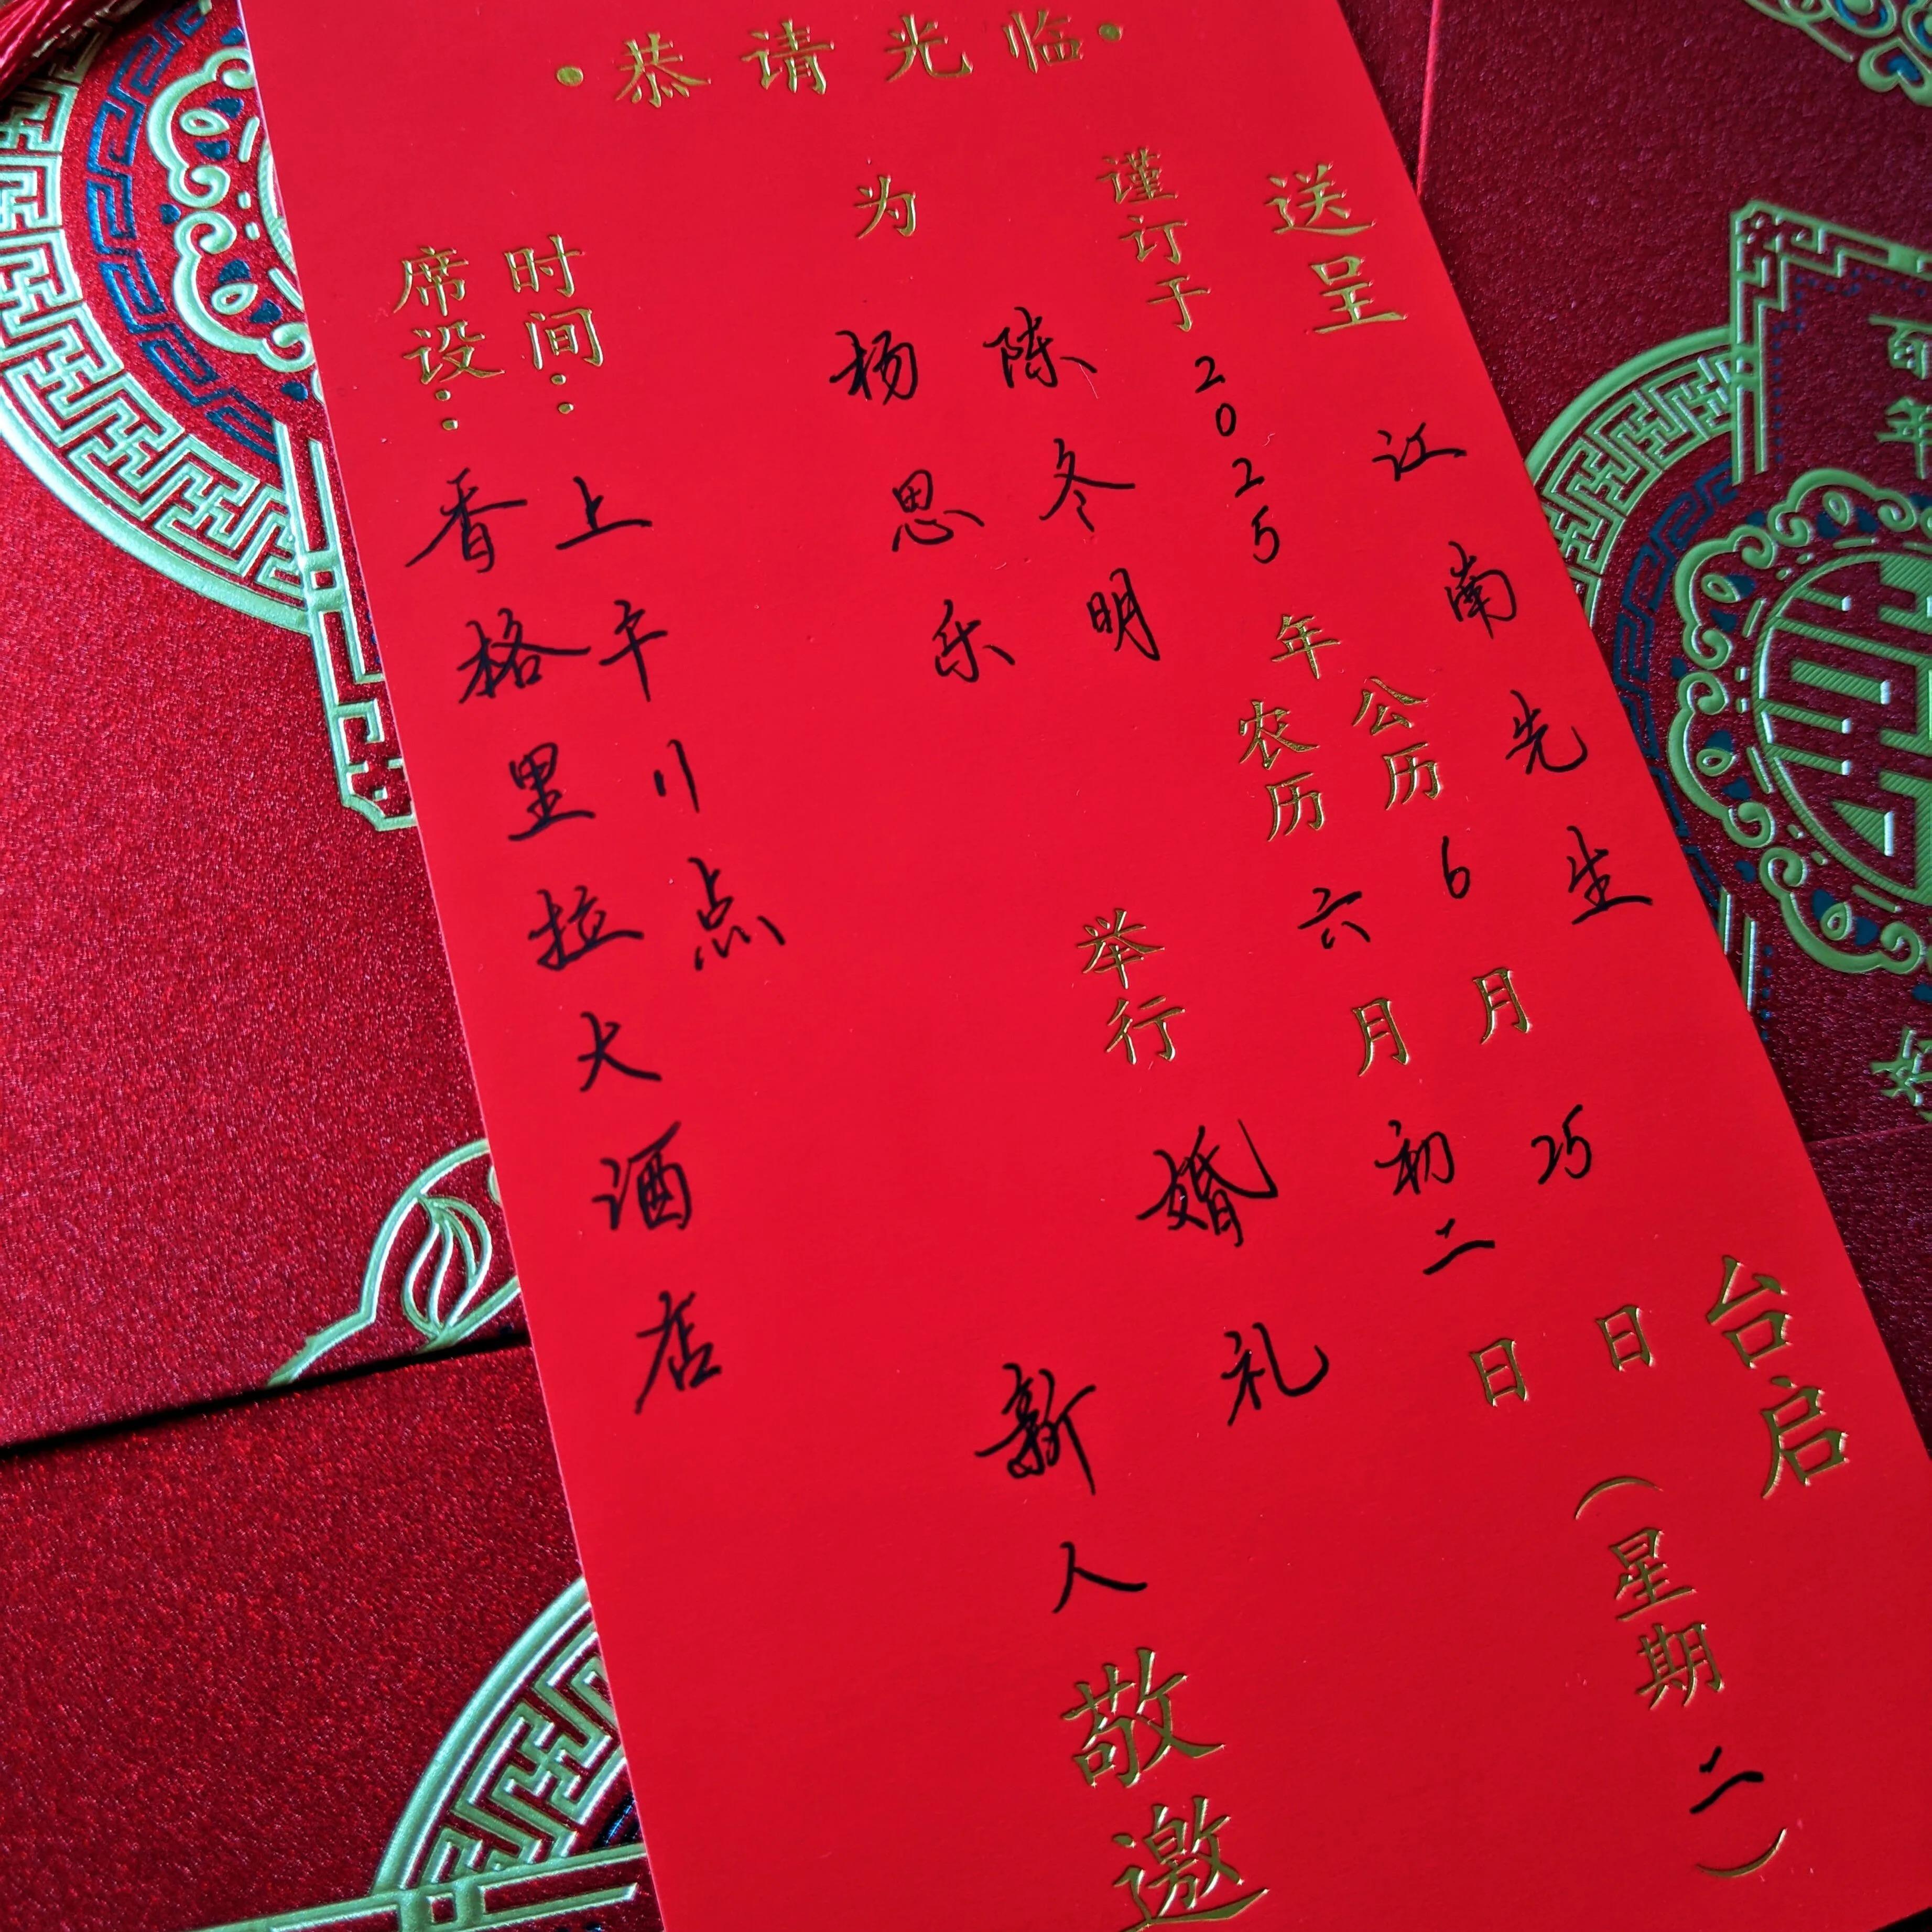 ·恭请光临·
送呈 江南先生 台启
谨订于2025年公历6月25日(星期二)
农历六月初二日
为 陈冬明 举行婚礼
杨思乐
新人敬邀
时间：上午11点
席设：香格里拉大酒店
百年